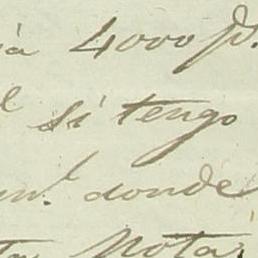 à 4000 P.
si tengo
donde
Nota